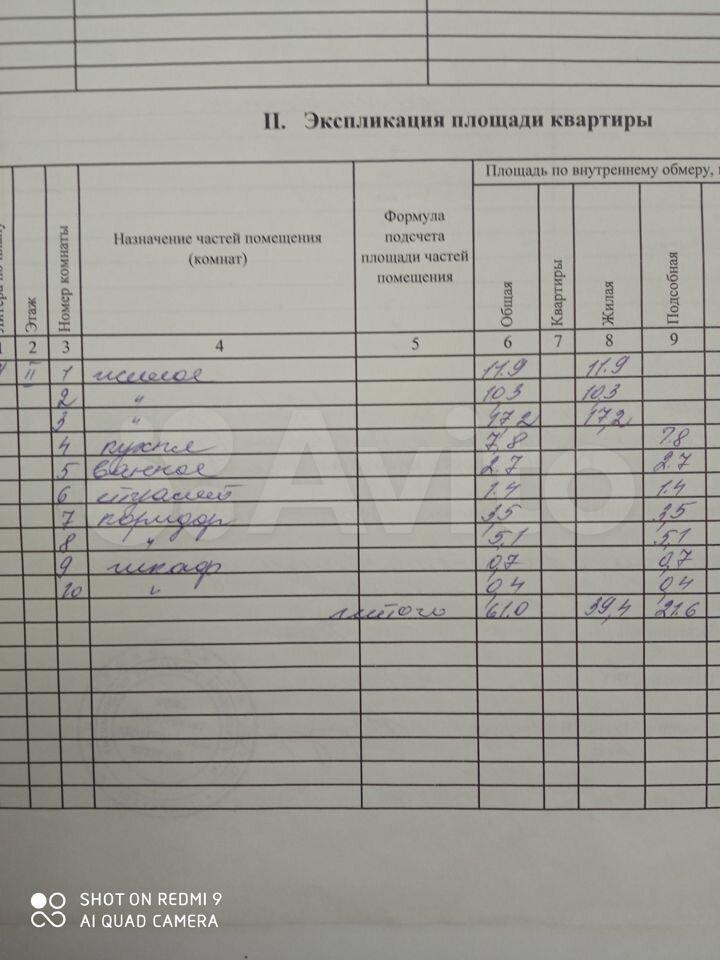 II. Экспликация площади квартиры
Литера по плану
Этаж
Номер комнаты
Назначение частей помещения (комнат)
Формула подсчета площади частей помещения
Площадь по внутреннему обмеру,
Общая
Квартиры
Жилая
Подсобная
1 2 3 4 5 6 7 8 9
II 1 жилая 11.9 11.9
2 " 10,3 10,3
3 " 17,2 17,2
4 кухня 7,8 7.8
5 ванная 2.7 2.7
6 туалет 1.4 1.4
7 коридор 3,5 3,5
8 " 5,1 5,1
9 шкаф 0,7 0,7
10 " 0,4 0,4
итого 61.0 39,4 21.6
Avito
SHOT ON REDMI 9
AI QUAD CAMERA